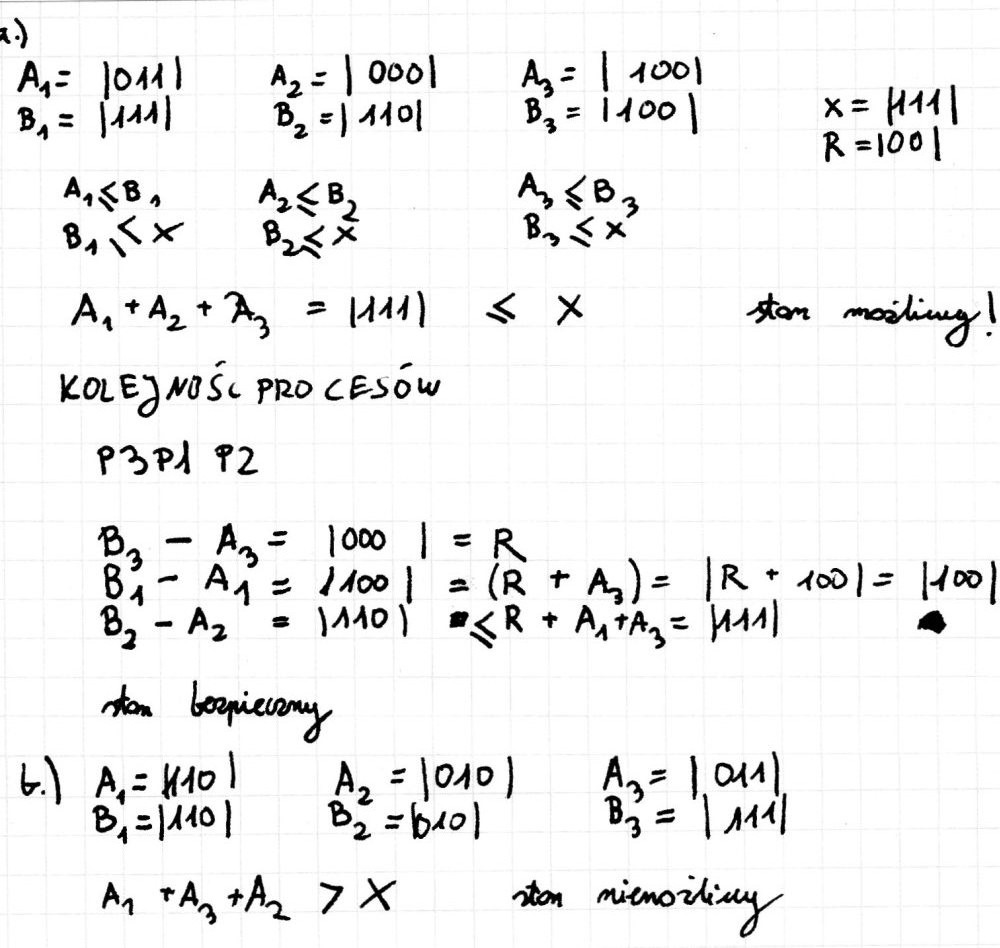 a.)
A₁= |011| A₂ = | 000| A₃ = | 100|
B₁ = |111| B₂ =| 110| B₃ = |100 | x = |111|
R =|00|
A₁≤B₁ A₂≤B₂ A₃ ≤B₃
B₁ ≤ x B₂≤ x B₃ ≤ x
A₁ + A₂ + A₃ = |111| ≤ X stan możliwy!
KOLEJNOŚĆ PROCESÓW
P3P1 P2
B₃ - A₃ = |000 | = R
B₁ - A₁ = |100 | = (R + A₃) = |R + 100| = |100|
B₂ - A₂ = |110| ≤ R + A₁+A₃ = |111|
stan bezpieczny
b.) A₁= |110| A₂ = |010| A₃ = | 011|
B₁=|110| B₂ =|010| B₃ = | 111|
A₁ +A₃ +A₂ > X stan niemożliwy